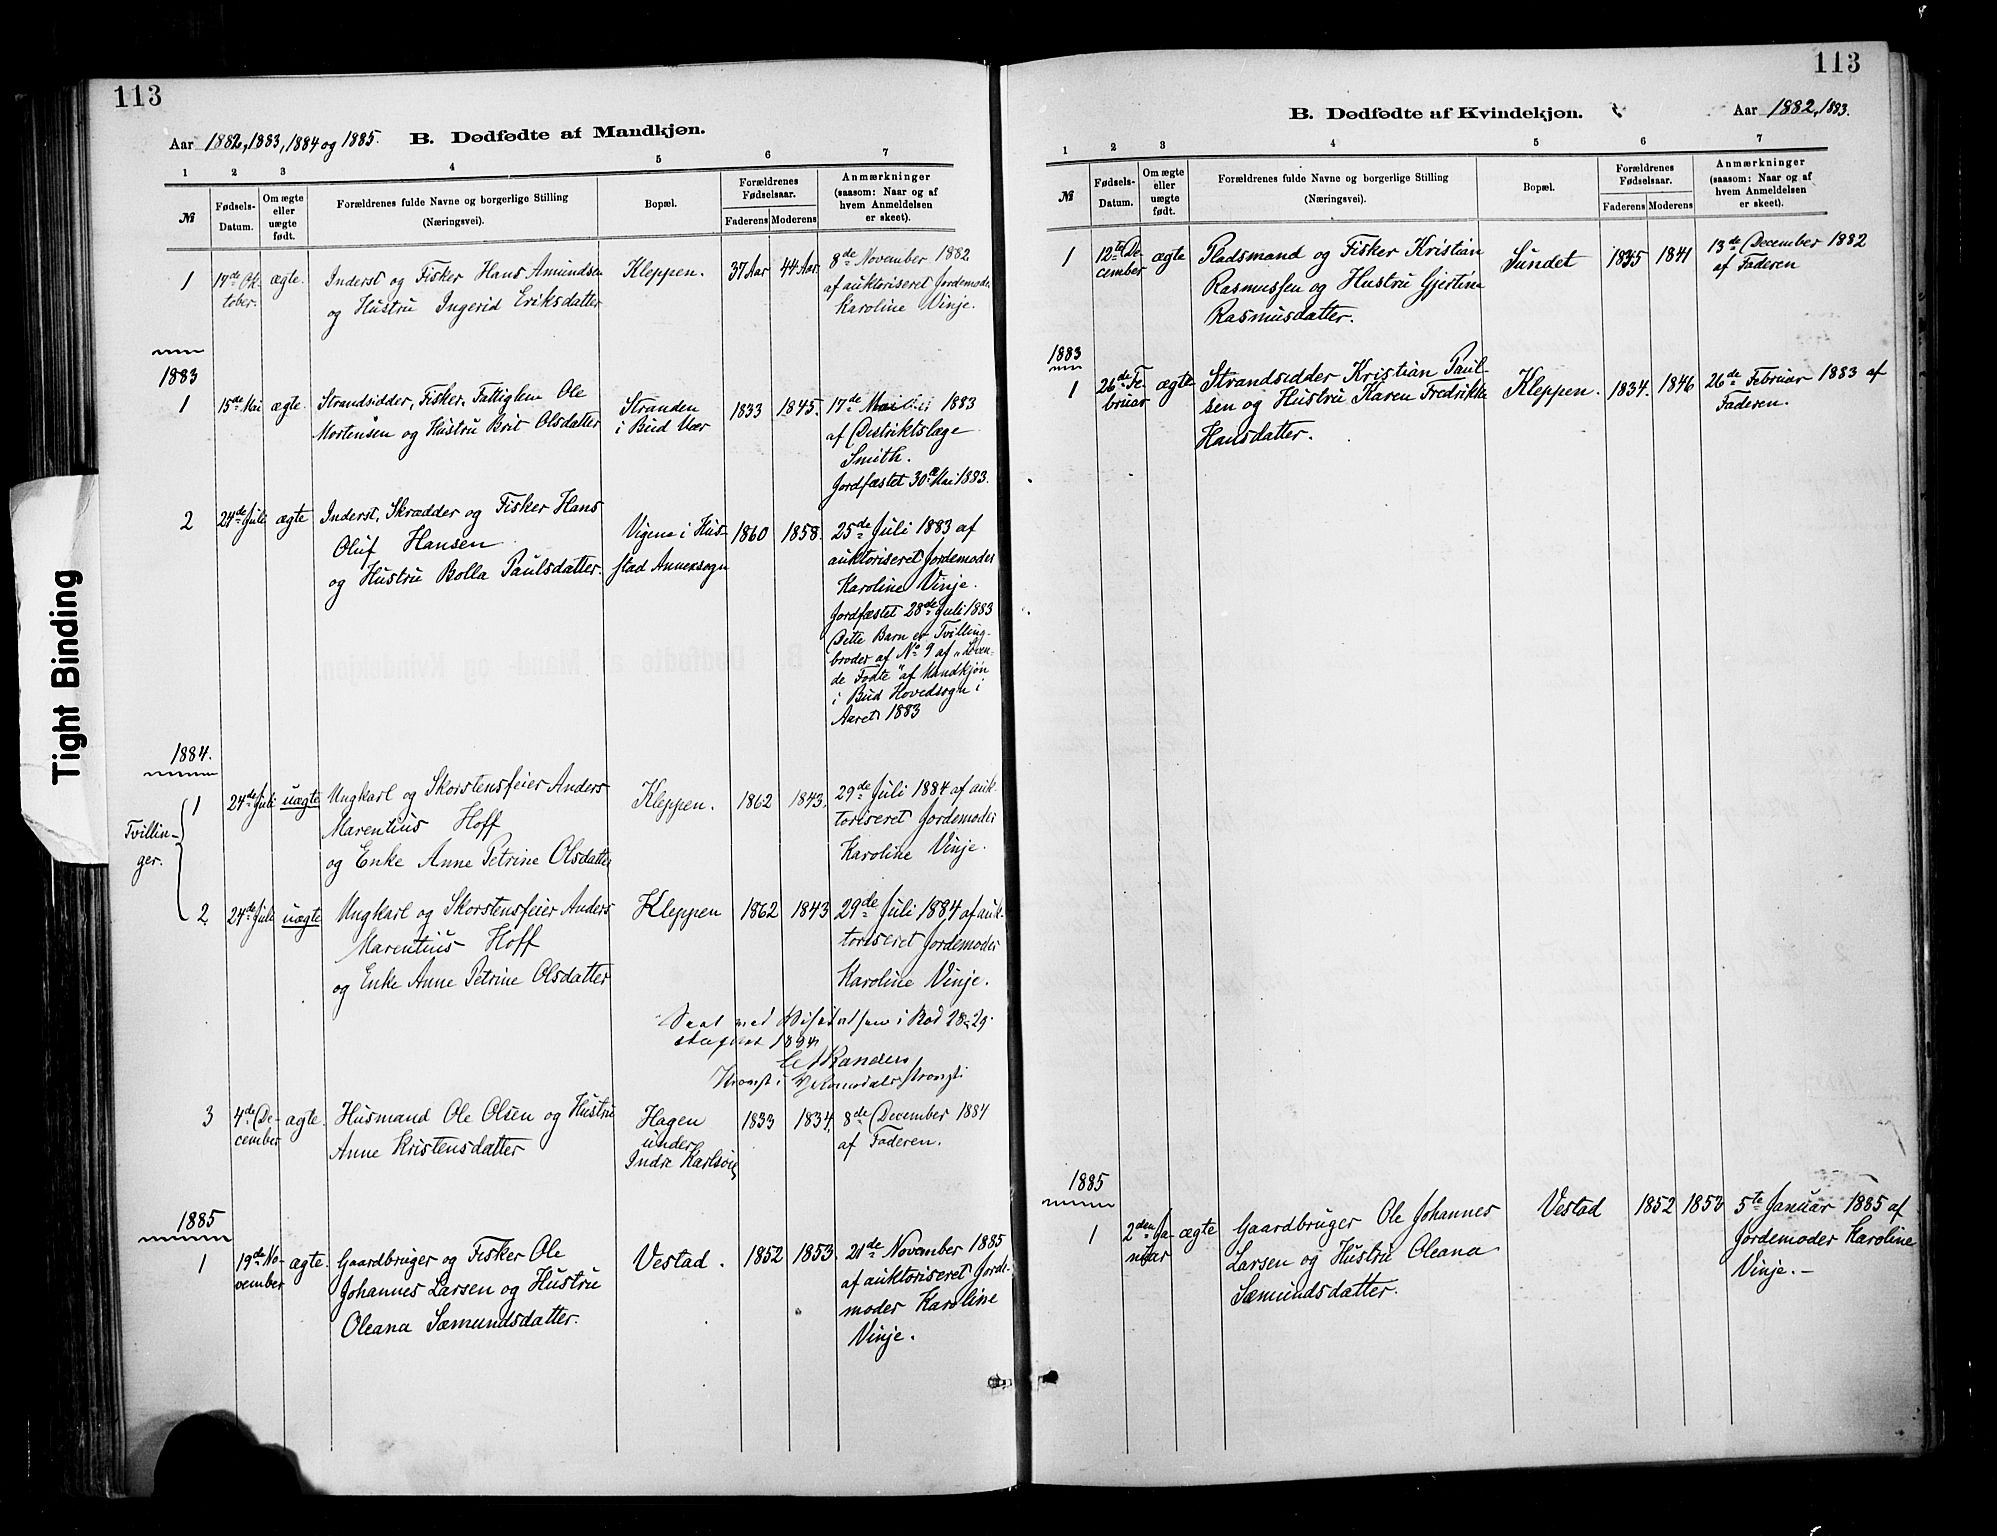 113
Aar 1882, 1883, 1884 og 1885. B. Dødfødte af Mandkjøn.
1 2 3 4 5 6 7
№ Fødsels-Datum. Om ægte eller uægte født. Forældrenes fulde Navne og borgerlige Stilling (Næringsvei). Bopæl. Forældrenes Fødselsaar. Faderens Moderens Anmærkninger (saasom: Naar og af hvem Anmeldelsen er skeet).
1 17de Ok- ægte. Inderst og Fisker Hans Amundsen Kleppen. 37 Aar 44 Aar 8de November 1882
tober. og Hustru Ingerid Eriksdatter af auktoriseret Jordemoder
Karoline Vinje.
1883
1 15de Mai ægte. Strandsidder, Fisker, Fattiglem Ole Stranden 1833 1845. 17de Mai 1883
Mortensen og Hustru Brit Olsdatter i Bud Vær af Distriktslæge
Smith.
Jordfæstet 30te Mai 1883.
2 24de Juli ægte Inderst, Skrædder og Fisker Hans Vigene i Hus- 1860 1858. 25de Juli 1883 af
Oluf Hansen stad Annexsogn auktoriseret Jordemoder
og Hustru Bolla Paulsdatter. Karoline Vinje.
Jordfæstet 28de Juli 1883
Dette Barn er Tvilling-
broder af No 9 af „Leven-
de Fødte" af Mandkjøn
i Bud Hovedsogn i
Aaret 1883
1884.
Tvillin-
ger.
1 24de Juli uægte Ungkarl og Skorstensfeier Anders Kleppen. 1862 1843. 29de Juli 1884 af auk-
Marentius Hoff toriseret Jordemoder
og Enke Anne Petrine Olsdatter Karoline Vinje.
2 24de Juli uægte Ungkarl og Skorstensfeier Anders Kleppen 1862 1843 29de Juli 1884 af auk-
Marentius Hoff toriseret Jordemoder
og Enke Anne Petrine Olsdatter Karoline Vinje.
i Bod 28-29
1884
Provst i Romsdals Provsti
3 4de De- ægte. Husmand Ole Olsen og Hustru Hagen 1833 1834. 8de December 1884
cember Anne Kristensdatter under af Faderen.
Indre Karlsøen
1885
1 19de No- ægte. Gaardbruger og Fisker Ole Vestad. 1852 1853. 21de November 1885
vember Johannes Larsen og Hustru af auktoriseret Jorde-
Oleana Sæmundsdatter. moder Karoline
Vinje.
Tight Binding
113
B. Dødfødte af Kvindekjøn. Aar 1882, 1883.
1 2 3 4 5 6 7
№ Fødsels-Datum. Om ægte eller uægte født. Forældrenes fulde Navne og borgerlige Stilling (Næringsvei). Bopæl. Forældrenes Fødselsaar. Faderens Moderens Anmærkninger (saasom: Naar og af hvem Anmeldelsen er skeet).
1 12te De- ægte Pladsmand og Fisker Kristian Sundet 1835 1841 13de December 1882
cember Rasmussen og Hustru Gjertine af Faderen
Rasmusdatter.
1883
1 26de Fe- ægte Strandsidder Kristian Paul- Kleppen. 1834. 1846 26de Februar 1883 af
bruar sen og Hustru Karen Fredrikke Faderen.
Hansdatter.
1885
1 2den Ja- ægte Gaardbruger Ole Johannes Vestad 1852 1853 5te Januar 1885 af
nuar Larsen og Hustru Oleana Jordemoder Karoline
Sæmundsdatter. Vinje.-